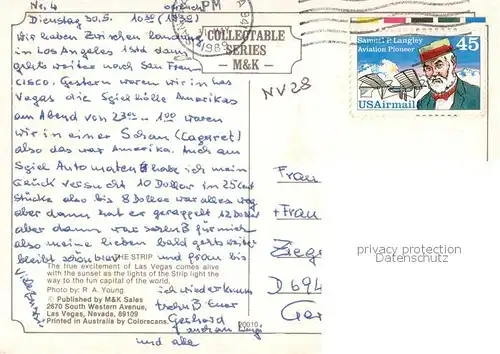 Nr. 4
Dienstag 30.5. 10:30 (19:30)
Wir haben Zwischen landung
in Los Angeles 1 Std dann
gehts weiter nach San Fran
CISCO. Gestern waren wir in Las
Vegas die Spielhölle Amerikas
am Abend von 23:00 - 1:00 waren
wir in einer Schau (Cabaret)
also das war Amerika. Auch am
Spiel Automaten habe ich mein
Glück versucht 10 Dollar in 25 Cent
Stücke also bis 8 Dollar war alles weg
aber dann hat er gerappelt 12 Dollar
aber dann war
also meine lieben bald gehts weiter
bleibt schön brav und
ich wiederkomm
Euer
Gerhard
und alle
PM
1989
COLLECTABLE
SERIES
- M&K -
NV28
Samuel P. Langley
Aviation Pioneer
45
USAirmail
Frau
+ Frau
Ziege
D 694
Ger
privacy protection
Datenschutz
THE STRIP
The true excitement of Las Vegas comes alive
with the sunset as the lights of the Strip light the
way to the fun capital of the world.
Photo by: R. A. Young
© Published by M&K Sales
2670 South Western Avenue,
Las Vegas, Nevada, 89109
Printed in Australia by Colorscans.
20010